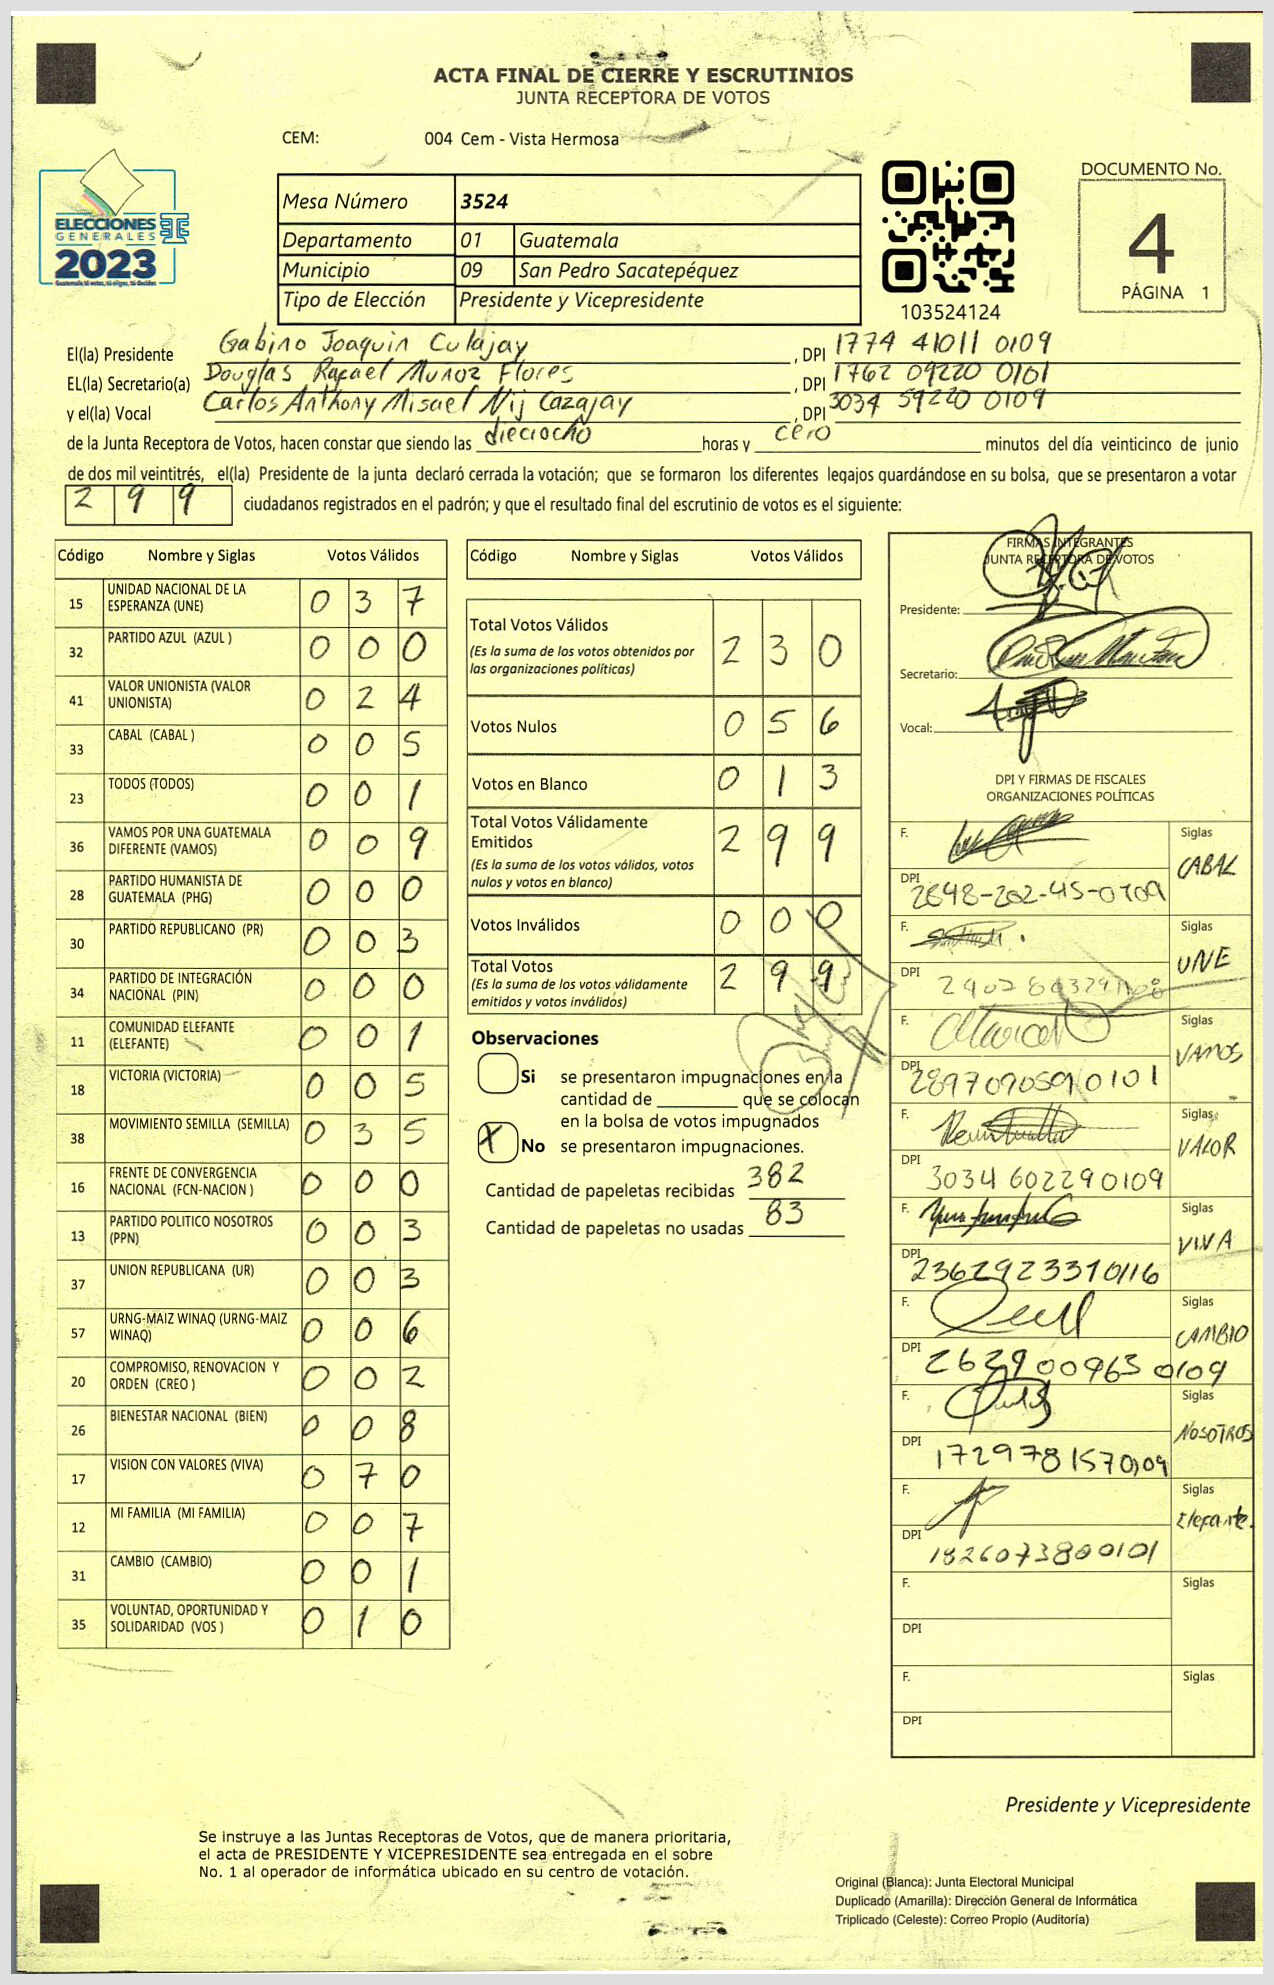 ACTA FINAL DE CIERRE Y ESCRUTINIOS
JUNTA RECEPTORA DE VOTOS
CEM: 004 Cem - Vista Hermosa
ELECCIONES
GENERALES
2023
Guatemala tú votas, tú eliges, tú decides
Mesa Número 3524
Departamento 01 Guatemala
Municipio 09 San Pedro Sacatepéquez
Tipo de Elección Presidente y Vicepresidente
103524124
DOCUMENTO No.
4
PÁGINA 1
El(la) Presidente Gabino Joaquin Culajay, DPI 1774 41011 0109
EL(la) Secretario(a) Douglas Rafael Muñoz Flores, DPI 1762 09220 0101
y el(la) Vocal Carlos Anthony Misael Nij Cazajay, DPI 3034 59220 0109
de la Junta Receptora de Votos, hacen constar que siendo las dieciocho horas y cero minutos del día veinticinco de junio
de dos mil veintitrés, el(la) Presidente de la junta declaró cerrada la votación; que se formaron los diferentes legajos guardándose en su bolsa, que se presentaron a votar
299 ciudadanos registrados en el padrón; y que el resultado final del escrutinio de votos es el siguiente:
Código Nombre y Siglas Votos Válidos
15 UNIDAD NACIONAL DE LA ESPERANZA (UNE) 037
32 PARTIDO AZUL (AZUL ) 000
41 VALOR UNIONISTA (VALOR UNIONISTA) 024
33 CABAL (CABAL ) 005
23 TODOS (TODOS) 001
36 VAMOS POR UNA GUATEMALA DIFERENTE (VAMOS) 009
28 PARTIDO HUMANISTA DE GUATEMALA (PHG) 000
30 PARTIDO REPUBLICANO (PR) 003
34 PARTIDO DE INTEGRACIÓN NACIONAL (PIN) 000
11 COMUNIDAD ELEFANTE (ELEFANTE) 001
18 VICTORIA (VICTORIA) 005
38 MOVIMIENTO SEMILLA (SEMILLA) 035
16 FRENTE DE CONVERGENCIA NACIONAL (FCN-NACION ) 000
13 PARTIDO POLITICO NOSOTROS (PPN) 003
37 UNION REPUBLICANA (UR) 003
57 URNG-MAIZ WINAQ (URNG-MAIZ WINAQ) 006
20 COMPROMISO, RENOVACION Y ORDEN (CREO ) 002
26 BIENESTAR NACIONAL (BIEN) 008
17 VISION CON VALORES (VIVA) 070
12 MI FAMILIA (MI FAMILIA) 007
31 CAMBIO (CAMBIO) 001
35 VOLUNTAD, OPORTUNIDAD Y SOLIDARIDAD (VOS ) 010
Código Nombre y Siglas Votos Válidos
Total Votos Válidos 230
(Es la suma de los votos obtenidos por
las organizaciones políticas)
Votos Nulos 056
Votos en Blanco 013
Total Votos Válidamente
Emitidos 299
(Es la suma de los votos válidos, votos
nulos y votos en blanco)
Votos Inválidos 000
Total Votos 299
(Es la suma de los votos válidamente
emitidos y votos inválidos)
Observaciones
Si se presentaron impugnaciones en la
cantidad de ________ que se colocan
en la bolsa de votos impugnados
X No se presentaron impugnaciones.
Cantidad de papeletas recibidas 382
Cantidad de papeletas no usadas 83
FIRMAS INTEGRANTES
JUNTA RECEPTORA DE VOTOS
Presidente:
Secretario:
Vocal:
DPI Y FIRMAS DE FISCALES
ORGANIZACIONES POLÍTICAS
F. Siglas CABAL
DPI 2648-202-45-0109
F. Siglas UNE
DPI
F. Siglas VAMOS
DPI 2897090590101
F. Siglas VALOR
DPI 3034602290109
F. Siglas VIVA
DPI 2362923310116
F. Siglas CAMBIO
DPI 2629009630109
F. Siglas NOSOTROS
DPI 1729781570109
F. Siglas Elefante.
DPI 1826073800101
F. Siglas
DPI
F. Siglas
DPI
Presidente y Vicepresidente
Se instruye a las Juntas Receptoras de Votos, que de manera prioritaria,
el acta de PRESIDENTE Y VICEPRESIDENTE sea entregada en el sobre
No. 1 al operador de informática ubicado en su centro de votación.
Original (Blanca): Junta Electoral Municipal
Duplicado (Amarilla): Dirección General de Informática
Triplicado (Celeste): Correo Propio (Auditoría)